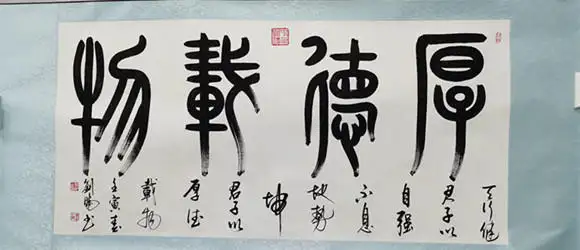 厚德載物
天行健
君子以
自强
不息
地勢
坤
君子以
厚德
載物
壬寅春